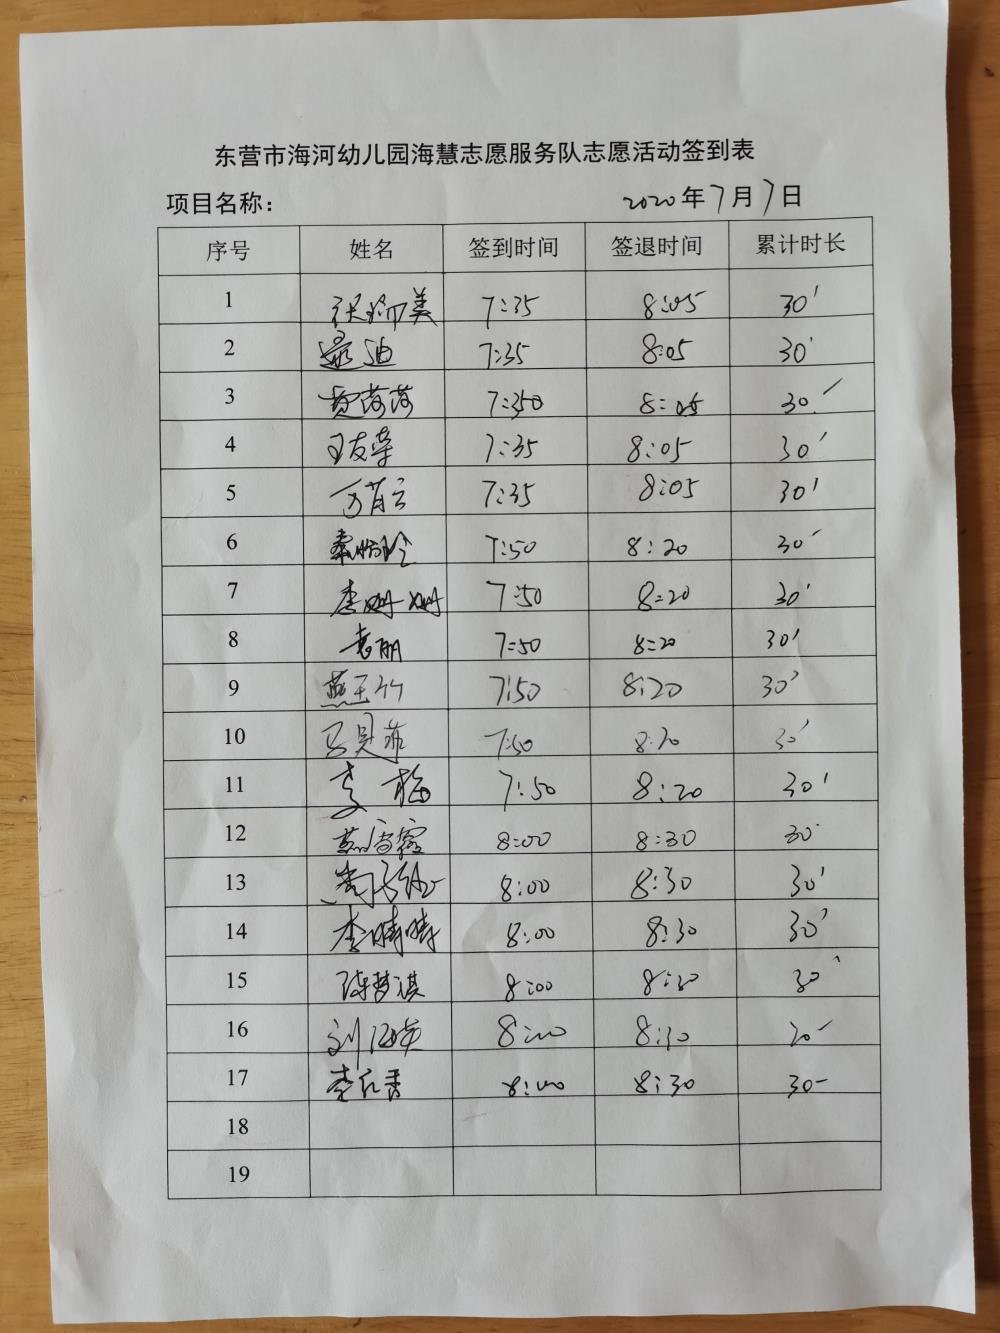 东营市海河幼儿园海慧志愿服务队志愿活动签到表
项目名称： 2020年7月7日
序号 姓名 签到时间 签退时间 累计时长
1 7:35 8:05 30'
2 迪 7:35 8:05 30'
3 7:350 8:05 30'
4 王友荣 7:35 8:05 30'
5 7:35 8:05 30'
6 7:50 8:20 30'
7 李姗姗 7:50 8:20 30'
8 袁丽 7:50 8:20 30'
9 燕玉竹 7:50 8:20 30'
10 7:50 8:20 30'
11 李梅 7:50 8:20 30'
12 8:00 8:30 30'
13 8:00 8:30 30'
14 李晴晴 8:00 8:30 30'
15 陈梦淇 8:00 8:30 30'
16 刘海英 8:00 8:30 30'
17 8:00 8:30 30'
18
19